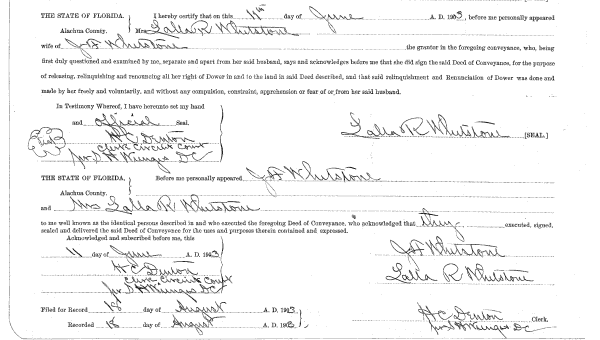 THE STATE OF FLORIDA. I hereby certify that on this 11th day of June A. D. 1903, before me personally appeared
Alachua County. Mrs Lalla R Whetstone
wife of J A Whetstone the grantor in the foregoing conveyance, who, being
first duly questioned and examined by me, separate and apart from her said husband, says and acknowledges before me that she did sign the said Deed of Conveyance, for the purpose
of releasing, relinquishing and renouncing all her right of Dower in and to the land in said Deed described, and that said relinquishment and Renunciation of Dower was done and
made by her freely and voluntarily, and without any compulsion, constraint, apprehension or fear of or from her said husband.
In Testimony Whereof, I have hereunto set my hand
and official Seal.
H C Denton
Clerk Circuit Court
D C
Lalla R Whetstone [SEAL.]
THE STATE OF FLORIDA. Before me personally appeared J A Whetstone
Alachua County.
and Mrs Lalla R Whetstone
to me well known as the identical persons described in and who executed the foregoing Deed of Conveyance, who acknowledged that they executed, signed,
sealed and delivered the said Deed of Conveyance for the uses and purposes therein contained and expressed.
Acknowledged and subscribed before me, this
11 day of June A. D. 1903
H C Denton
Clerk Circuit Court
D C
J A Whetstone
Lalla R Whetstone
Filed for Record 18 day of August A. D. 1903
Recorded 18 day of August A. D. 1903
H C Denton Clerk.
D C